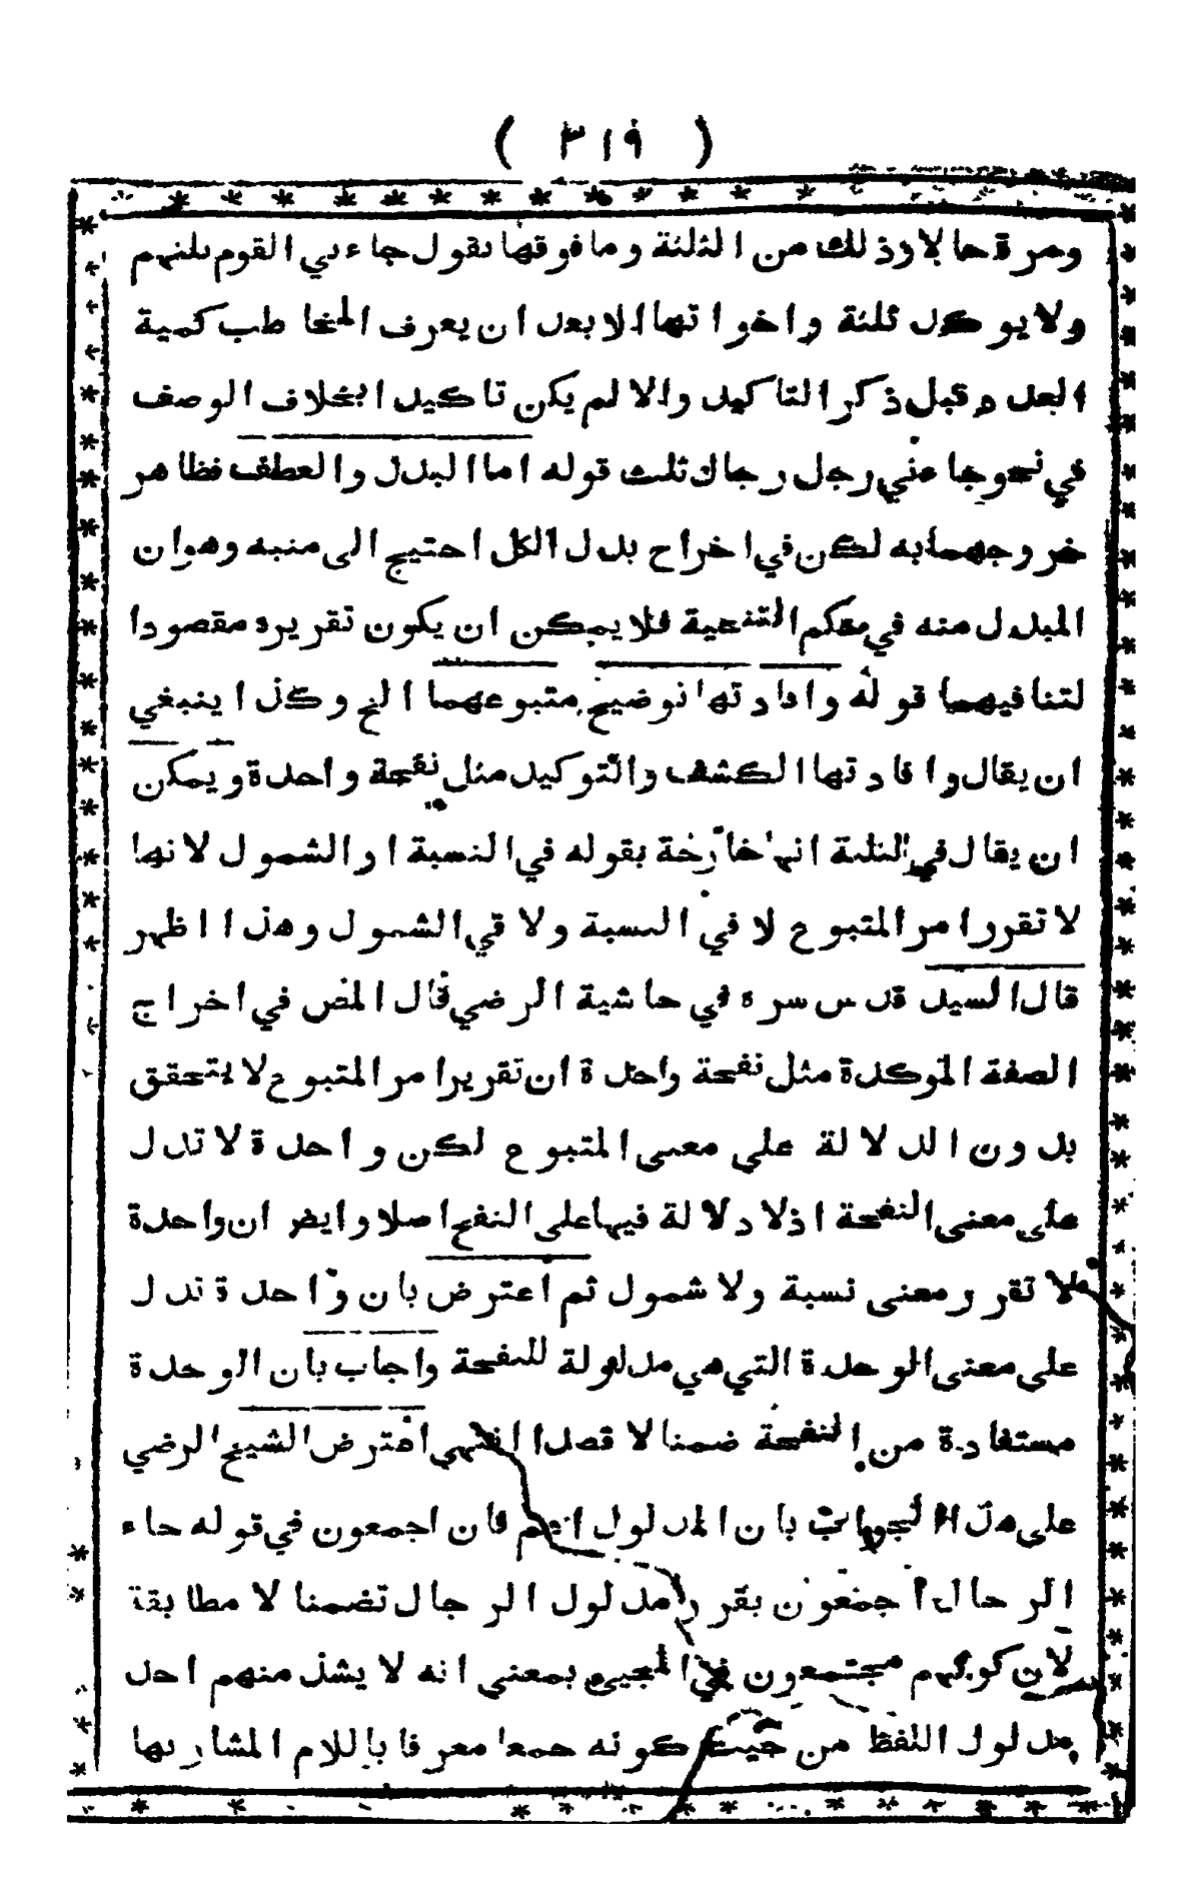 ( ٣١٩ )
ومرة حالا وذلك من الثلثة وما فوقها تقول جاءني القوم ثلثهم
ولا يوكد ثلثة واخواتها الا بعد ان يعرف المخاطب كمية
العدد قبل ذكر التاكيد والا لم يكن تاكيدا بخلاف الوصف
في نحو جاءني رجل رجال ثلث قوله اما البدل والعطف فظاهر
خروجهما به لكن في اخراج بدل الكل احتيج الى منبه وهو ان
المبدل منه في حكم التنحية فلا يمكن ان يكون تقريره مقصودا
لتنافيهما قوله وافادتها توضيح متبوعهما الخ وكذا ينبغي
ان يقال وافادتها الكشف والتوكيد مثل نفحة واحدة ويمكن
ان يقال في الثلثة انها خارجة بقوله في النسبة او الشمول لانها
لا تقرر امر المتبوع لا في النسبة ولا في الشمول وهذا اظهر
قال السيد قدس سره في حاشية الرضي قال المص في اخراج
الصفة الموكدة مثل نفحة واحدة ان تقرير امر المتبوع لا يتحقق
بدون الدلالة على معنى المتبوع لكن واحدة لا تدل
على معنى النفحة اذ لا دلالة فيها على النفح اصلا وايضر ان واحدة
لا تقرر معنى نسبة ولا شمول ثم اعترض بان واحدة تدل
على معنى الوحدة التي هي مدلولة للنفحة واجاب بان الوحدة
مستفادة من النفحة ضمنا لا قصدا انتهى اعترض الشيخ الرضي
على هذا الجواب بان المدلول اعم فان اجمعون في قوله جاء
الرجال اجمعون يقرر مدلول الرجال تضمنا لا مطابقة
لان كونهم مجتمعون في المجيئ بمعنى انه لا يشذ منهم احد
مدلول اللفظ من حيث كونه جمعا معرفا باللام المشار بها